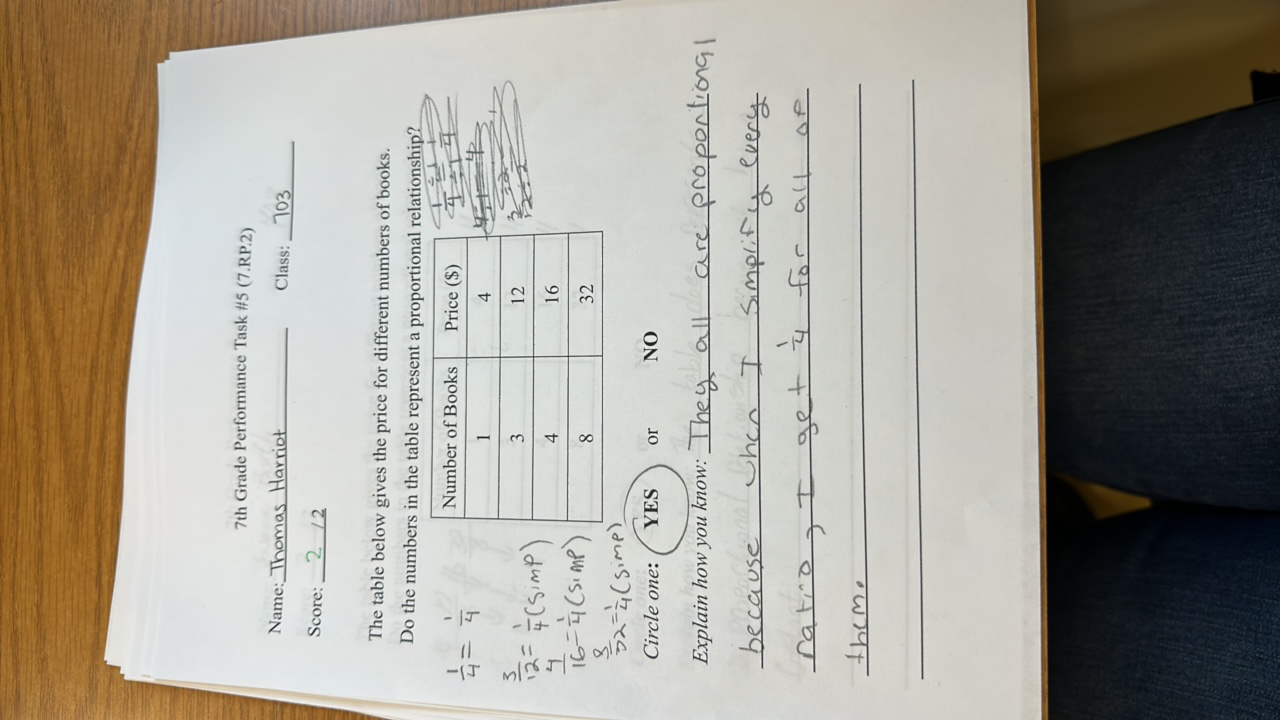 7th Grade Performance Task #5 (7.RP.2)
Name: Thomas Harriot Class: 703
Score: 2 / 2
The table below gives the price for different numbers of books.
Do the numbers in the table represent a proportional relationship?
Number of Books Price ($)
1 4
3 12
4 16
8 32
1/4 = 1/4
3/12 = 1/4 (simp)
4/16 = 1/4 (simp)
8/32 = 1/4 (simp)
Circle one: YES or NO
Explain how you know: They all are proportional
because when I simplify every
ratio, I get 1/4 for all of
them.